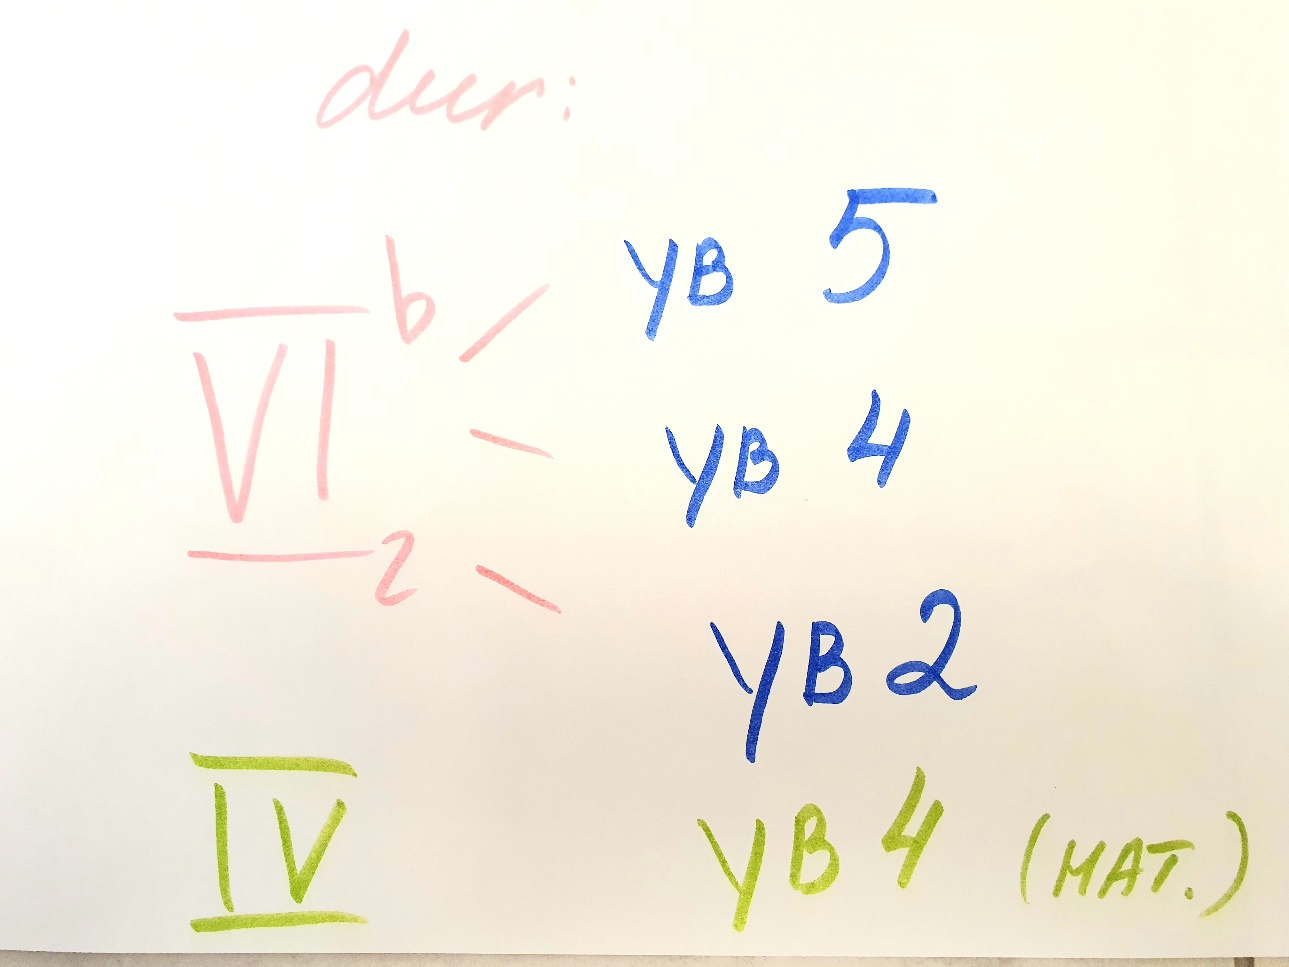 dur:
VI b УВ 5
УВ 4
г УВ 2
IV УВ 4 (НАТ.)